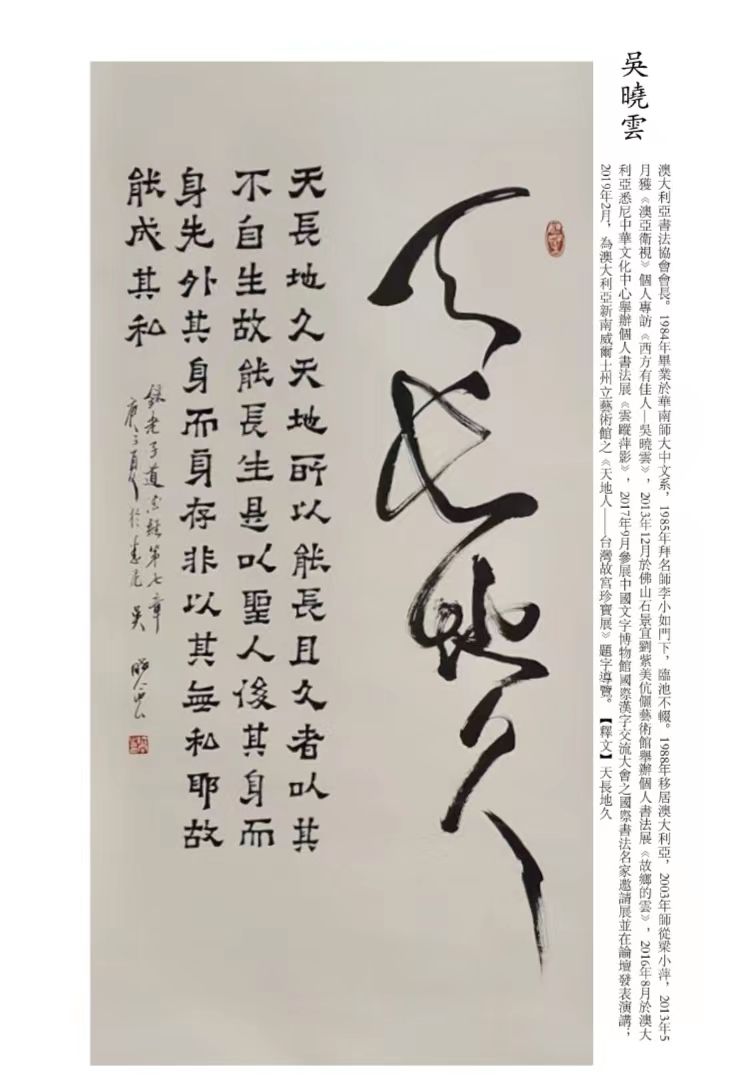 吳曉雲
澳大利亞書法協會會長。1984年畢業於華南師大中文系，1985年拜名師李小如門下，臨池不輟。1988年移居澳大利亞，2003年師從梁小萍，2013年5
月獲《澳亞衛視》個人專訪《西方有佳人—吳曉雲》，2013年12月於佛山石景宜劉紫美伉儷藝術館舉辦個人書法展《故鄉的雲》，2016年8月於澳大
利亞悉尼中華文化中心舉辦個人書法展《雲蹤萍影》，2017年9月參展中國文字博物館國際漢字交流大會之國際書法名家邀請展並在論壇發表演講；
2019年2月，為澳大利亞新南威爾士州立藝術館之《天地人——台灣故宮珍寶展》題字導覽。【釋文】天長地久
天長地久
天長地久天地所以能長且久者以其
不自生故能長生是以聖人後其身而
身先外其身而身存非以其無私耶故
能成其私
錄老子道德經第七章
庚子夏於悉尼吳曉雲